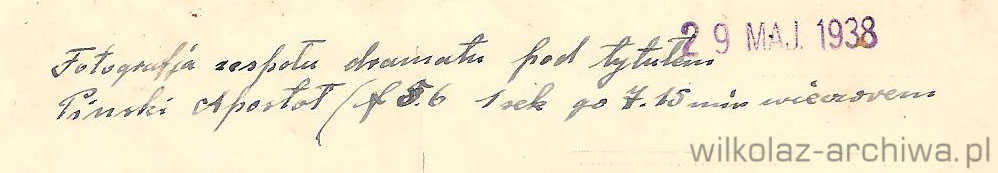 29 MAJ. 1938
Fotografja zespołu dramatu pod tytułem
Piński Apostoł (f 5.6 1 sek go 7.15 min wieczorem
wilkolaz-archiwa.pl